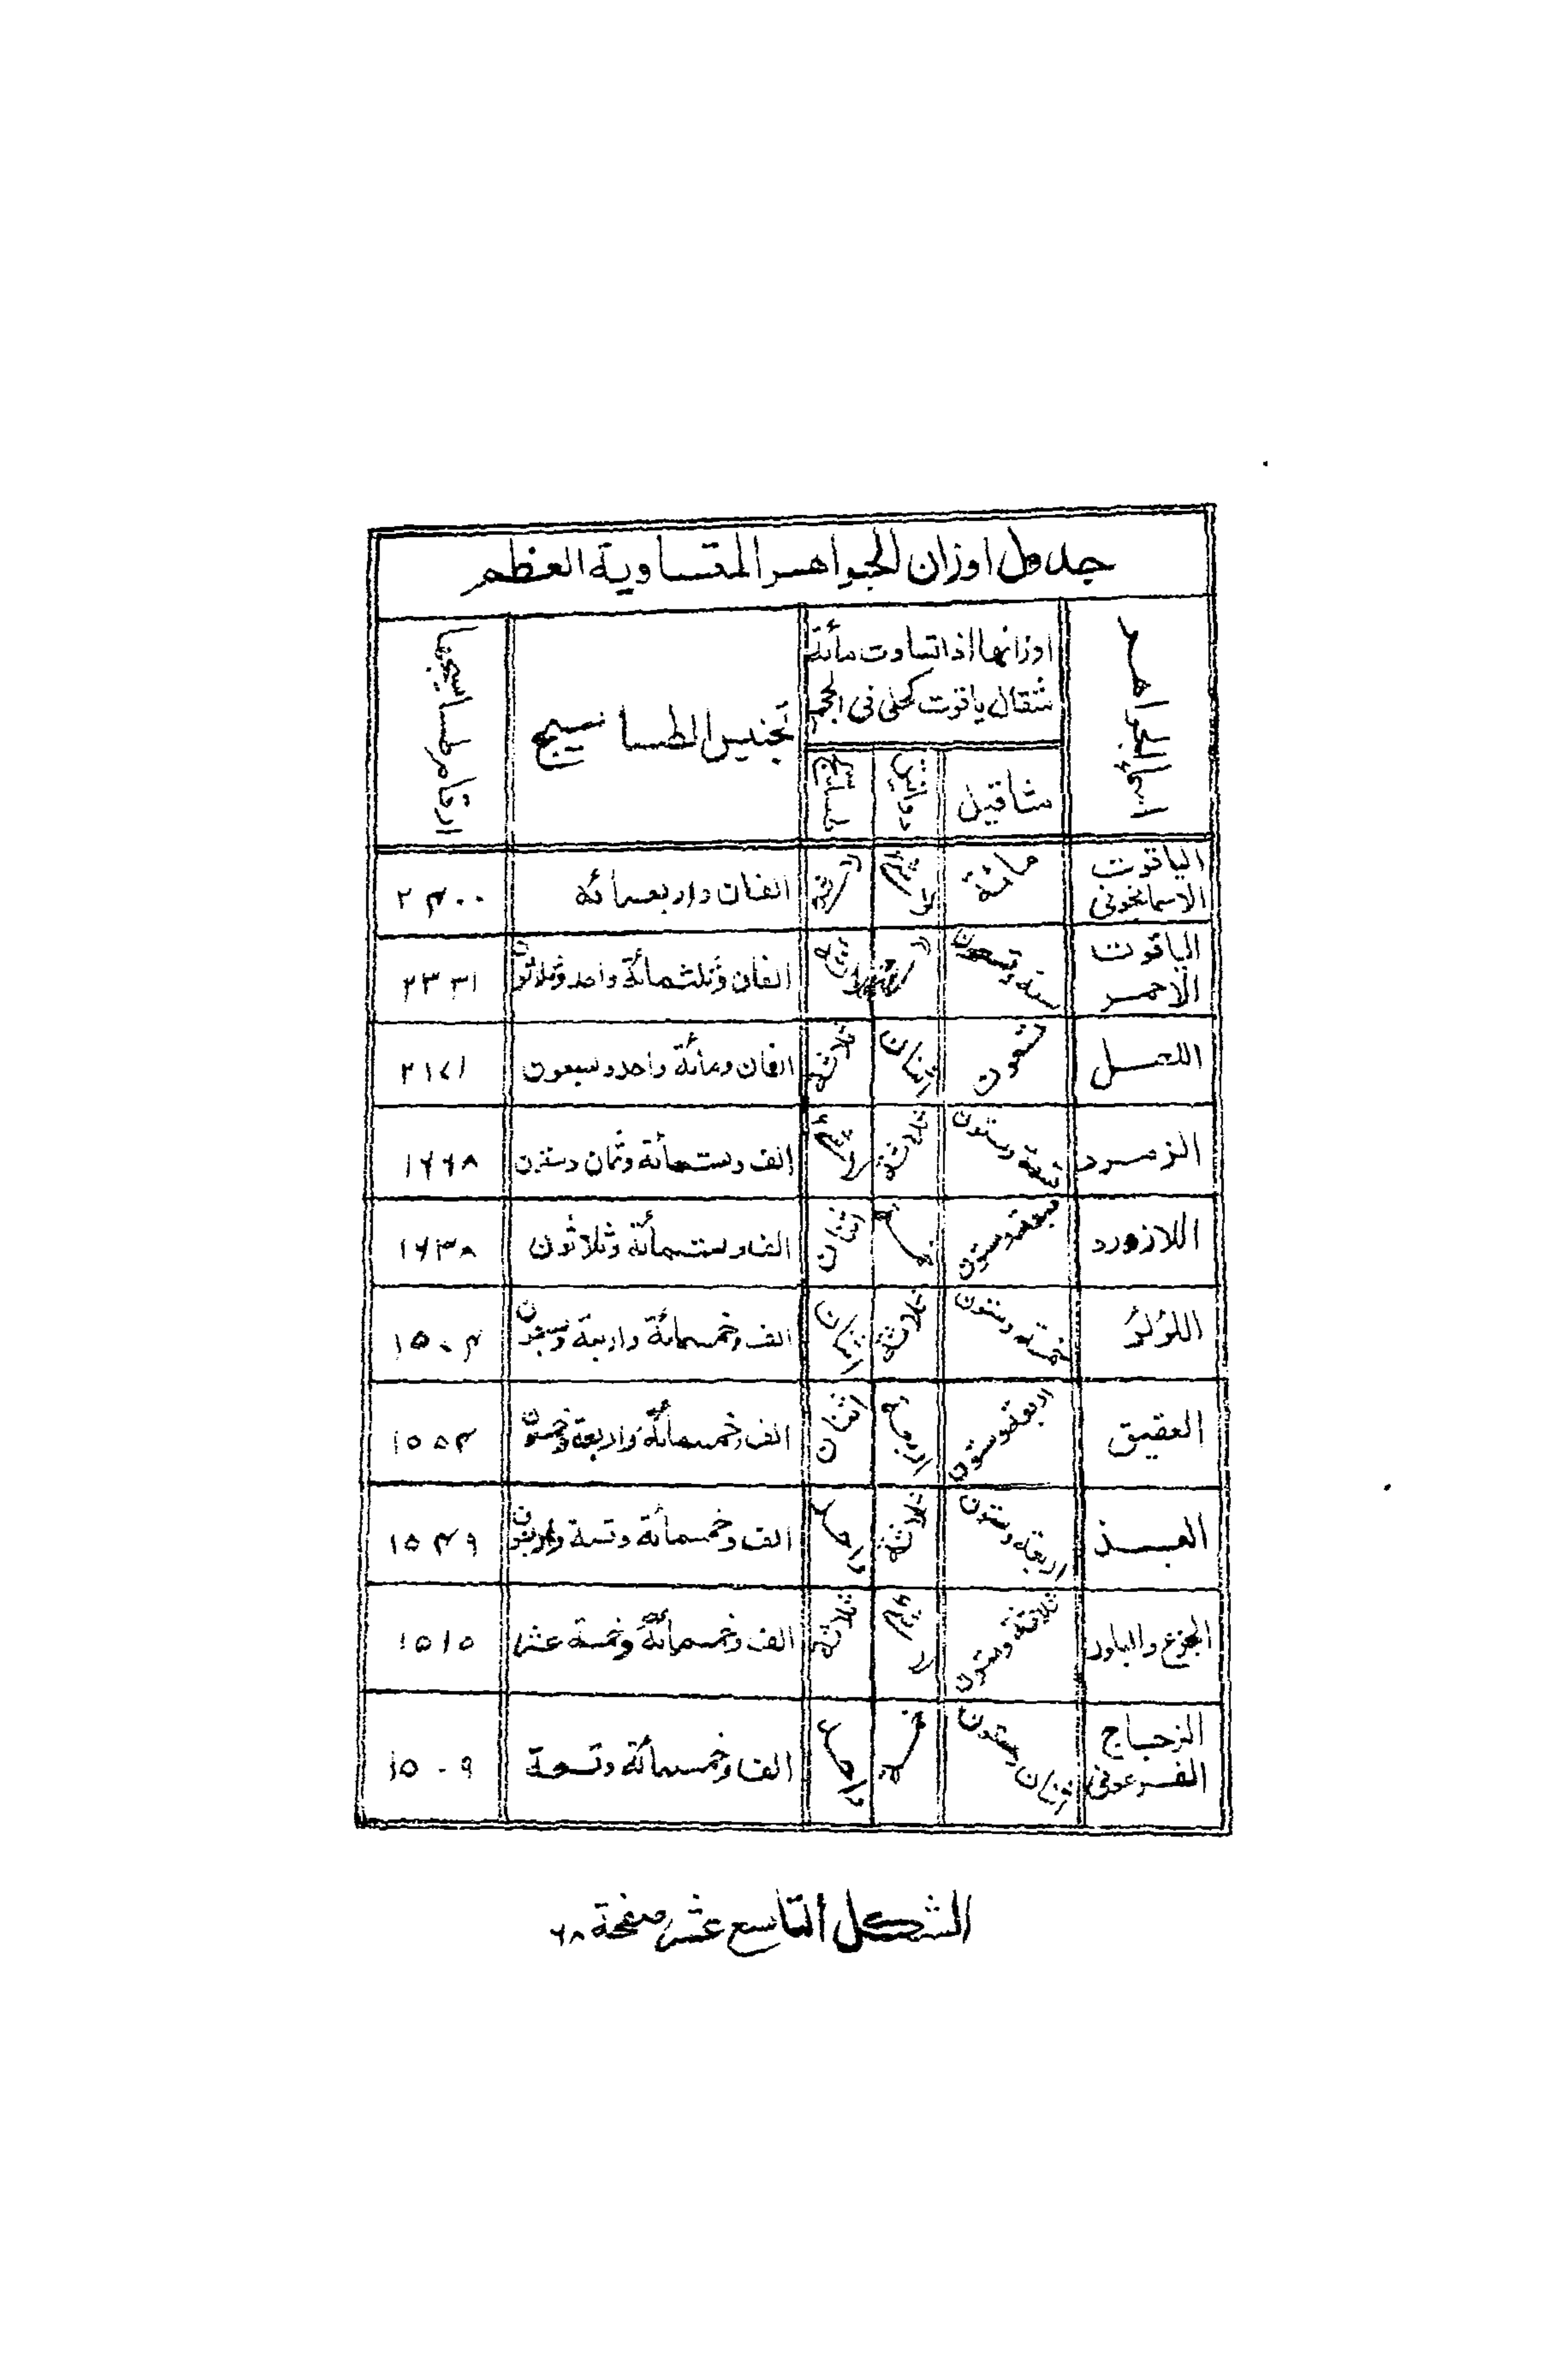 جدول اوزان الجواهر المتساوية العظم
اسماء الجواهر
اوزانها اذا تساوت مأئة
مثقال ياقوت كحلى فى الحجم
مثاقيل
دوانيق
طساسيج
تجنيس الطساسيج
ارقام طساسيجها
الياقوت
الاسمانجونى
مائة
لا شئ
لا شئ
الفان واربعمائة
٢۴٠٠
الياقوت
الاحمر
ستة وتسعون
ثلاثة
الفان وثلثمائة واحد وثلاثون
٢٣٣١
اللعل
تسعون
اثنان
ثلاثة
الفان ومائة واحد وسبعون
٢١٧١
الزمرد
تسعة وستون
ثلاثة
لا شئ
الف وستمأئة وثمان وستون
١٦٦٨
اللازورد
سبعة وستون
اثنان
الف وستمأئة وثلاثون
١٦٣٨
اللؤلؤ
خمسة وستون
ثلاثة
اثنان
الف وخمسمائة واربعة
١٥٠۴
العقيق
اربعة وستون
اربعة
اثنان
الف وخمسمائة واربعة وخمسون
١٥٥۴
البسذ
اربعة وستون
ثلاثة
واحد
الف وخمسمأئة وتسعة واربعون
١٥۴٩
الجزع والبلور
ثلاثة وستون
لا شئ
ثلاثة
الف وخمسمائة وخمسة عشر
١٥١٥
الزجاج
الفرعونى
اثنان وستون
خمسة
واحد
الف وخمسمائة وتسعة
١٥٠٩
الشكل التاسع عشر صفحة ٦٨